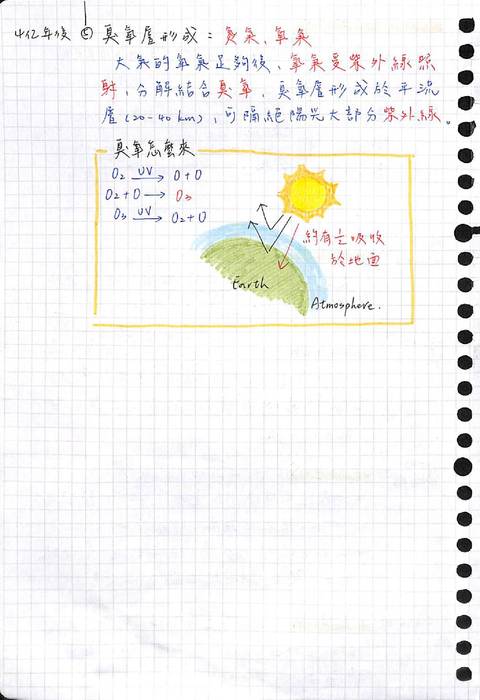 4亿年後 ⑤ 臭氧層形成：氮氣、氧氣
大氣的氧氣足夠後，氧氣受紫外線照
射，分解結合臭氧，臭氧層形成於平流
層(20-40 km)，可隔絕陽光大部分紫外線。
臭氧怎麼來
O₂ UV→ O+O
O₂+O → O₃
O₃ UV→ O₂+O
約有½吸收
於地面
Earth
Atmosphere.